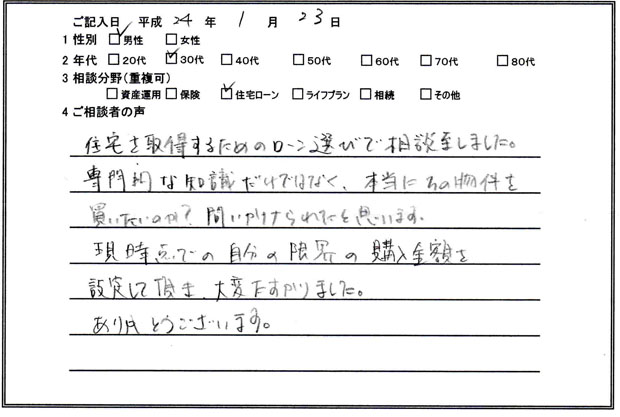 ご記入日 平成 24 年 1 月 23 日
1 性別 ☑男性 □女性
2 年代 □20代 ☑30代 □40代 □50代 □60代 □70代 □80代
3 相談分野(重複可)
□資産運用 □保険 ☑住宅ローン □ライフプラン □相続 □その他
4 ご相談者の声
住宅を取得するためのローン選びで相談致しました。
専門的な知識だけではなく、本当にその物件を
買いたいのか?問いかけられたと思います。
現時点での自分の限界の購入金額を
設定して頂き、大変たすかりました。
ありがとうございます。